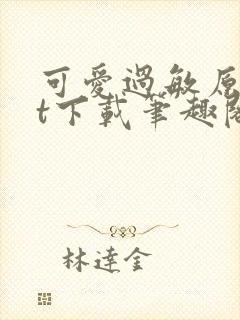 可愛過敏原
t下載筆趣閣
林達金